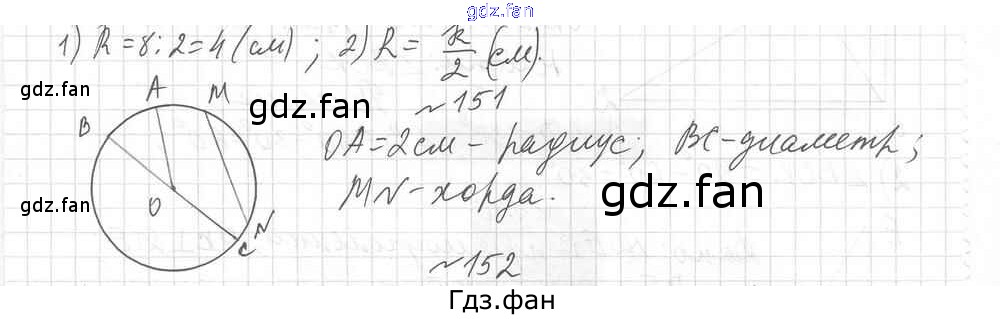 gdz.fan
1) R = 8 : 2 = 4 (см) ; 2) R = k/2 (см).
~ 151
gdz.fan
A M
gdz.fan
B
OA = 2см - радиус; BC - диаметр;
MN - хорда.
gdz.fan
gdz.fan
O
N
C
~ 152
Гдз.фан